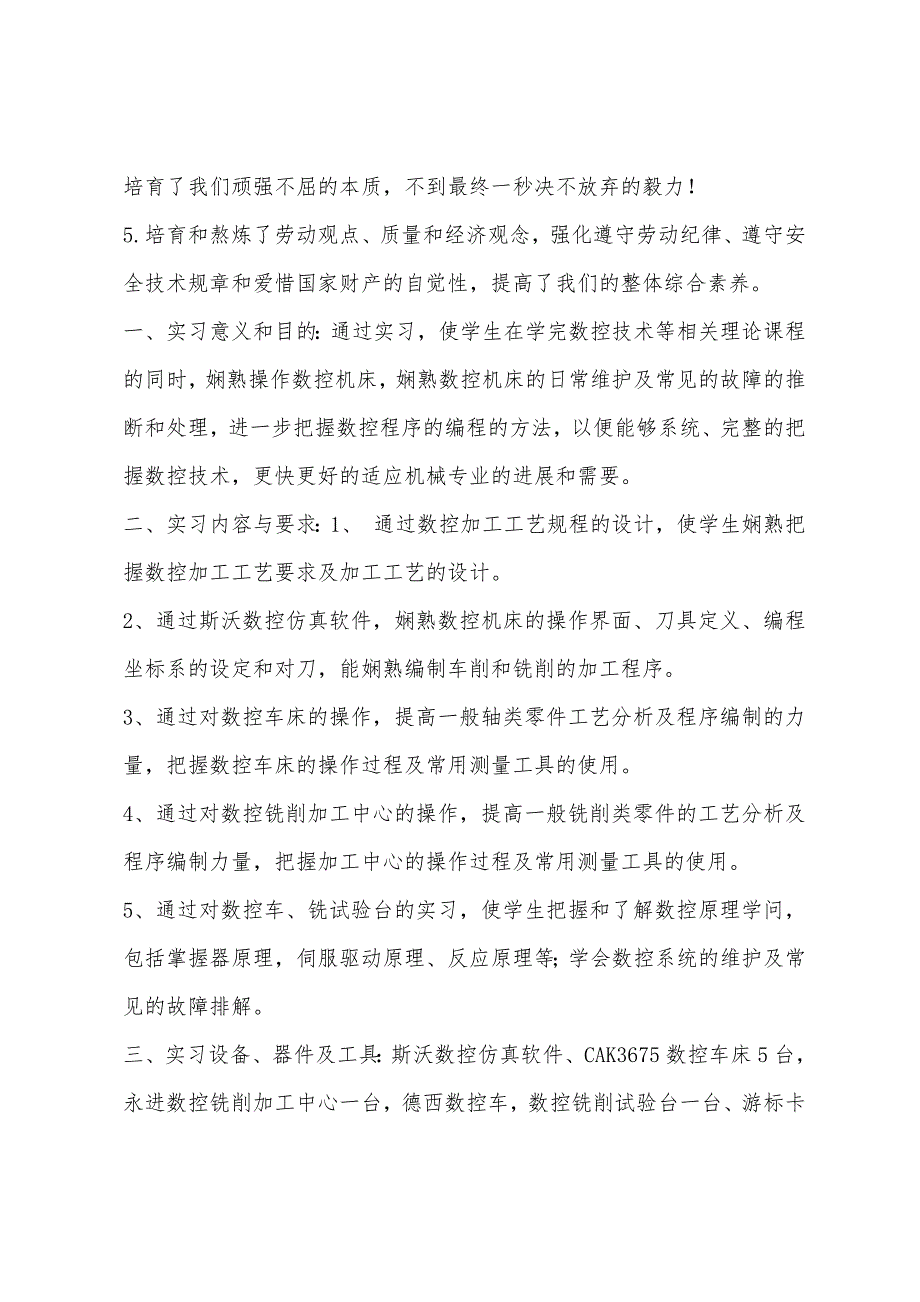 培育了我们顽强不屈的本质，不到最终一秒决不放弃的毅力！
5.培育和熬炼了劳动观点、质量和经济观念，强化遵守劳动纪律、遵守安
全技术规章和爱惜国家财产的自觉性，提高了我们的整体综合素养。
一、实习意义和目的：通过实习，使学生在学完数控技术等相关理论课程
的同时，娴熟操作数控机床，娴熟数控机床的日常维护及常见的故障的推
断和处理，进一步把握数控程序的编程的方法，以便能够系统、完整的把
握数控技术，更快更好的适应机械专业的进展和需要。
二、实习内容与要求：1、 通过数控加工工艺规程的设计，使学生娴熟把
握数控加工工艺要求及加工工艺的设计。
2、通过斯沃数控仿真软件，娴熟数控机床的操作界面、刀具定义、编程
坐标系的设定和对刀，能娴熟编制车削和铣削的加工程序。
3、通过对数控车床的操作，提高一般轴类零件工艺分析及程序编制的力
量，把握数控车床的操作过程及常用测量工具的使用。
4、通过对数控铣削加工中心的操作，提高一般铣削类零件的工艺分析及
程序编制力量，把握加工中心的操作过程及常用测量工具的使用。
5、通过对数控车、铣试验台的实习，使学生把握和了解数控原理学问，
包括掌握器原理，伺服驱动原理、反应原理等；学会数控系统的维护及常
见的故障排解。
三、实习设备、器件及工具：斯沃数控仿真软件、CAK3675数控车床5台，
永进数控铣削加工中心一台，德西数控车，数控铣削试验台一台、游标卡